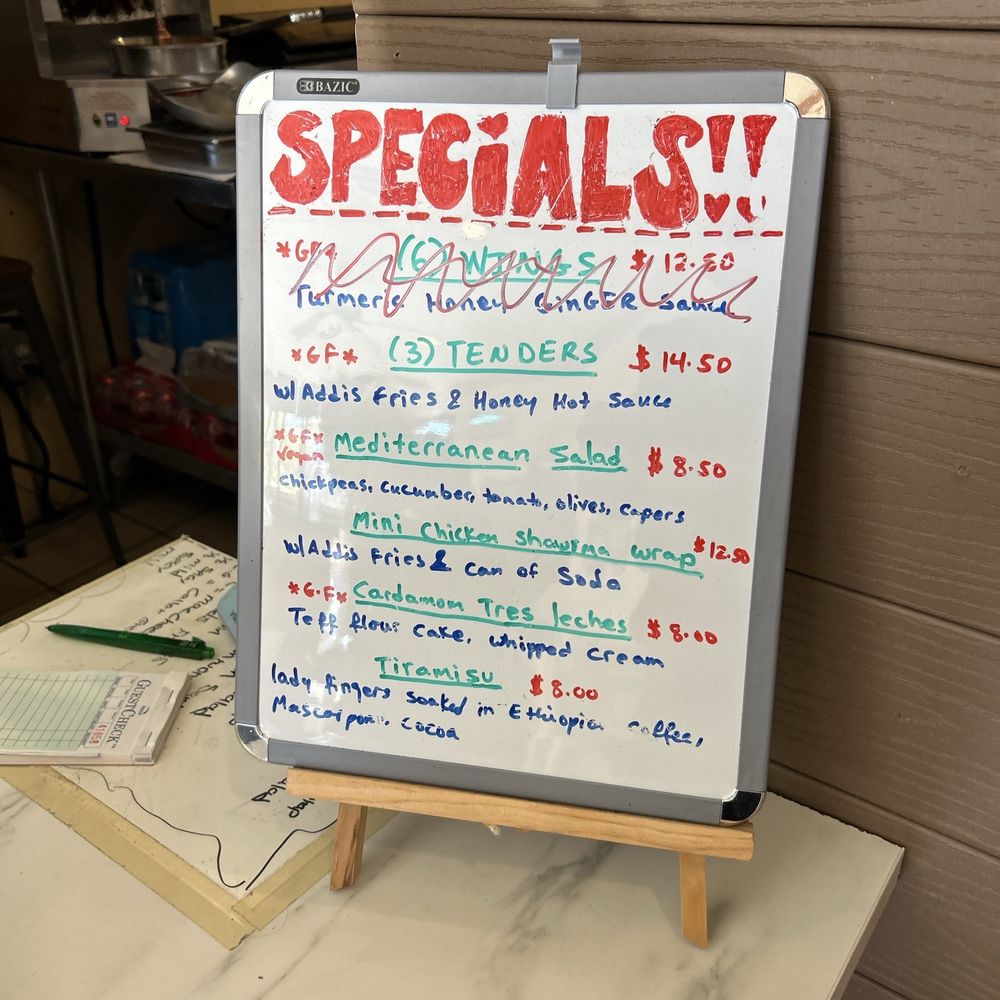 BAZIC
SPECiALS!!
*GF* (6) WINGS $12.50
Turmeric Honey GinGER Sauce
*GF* (3) TENDERS $14.50
w/Addis Fries & Honey Hot Sauce
*GF* Vegan Mediterranean Salad $8.50
chickpeas, cucumber, tomato, olives, capers
Mini Chicken Shawrma wrap $12.50
w/Addis Fries & Can of Soda
*G.F* Cardamom Tres leches $8.00
Teff flour Cake, whipped cream
Tiramisu $8.00
lady fingers soaked in Ethiopia coffee,
Mascarpone, cocoa
GUESTCHECK
41858